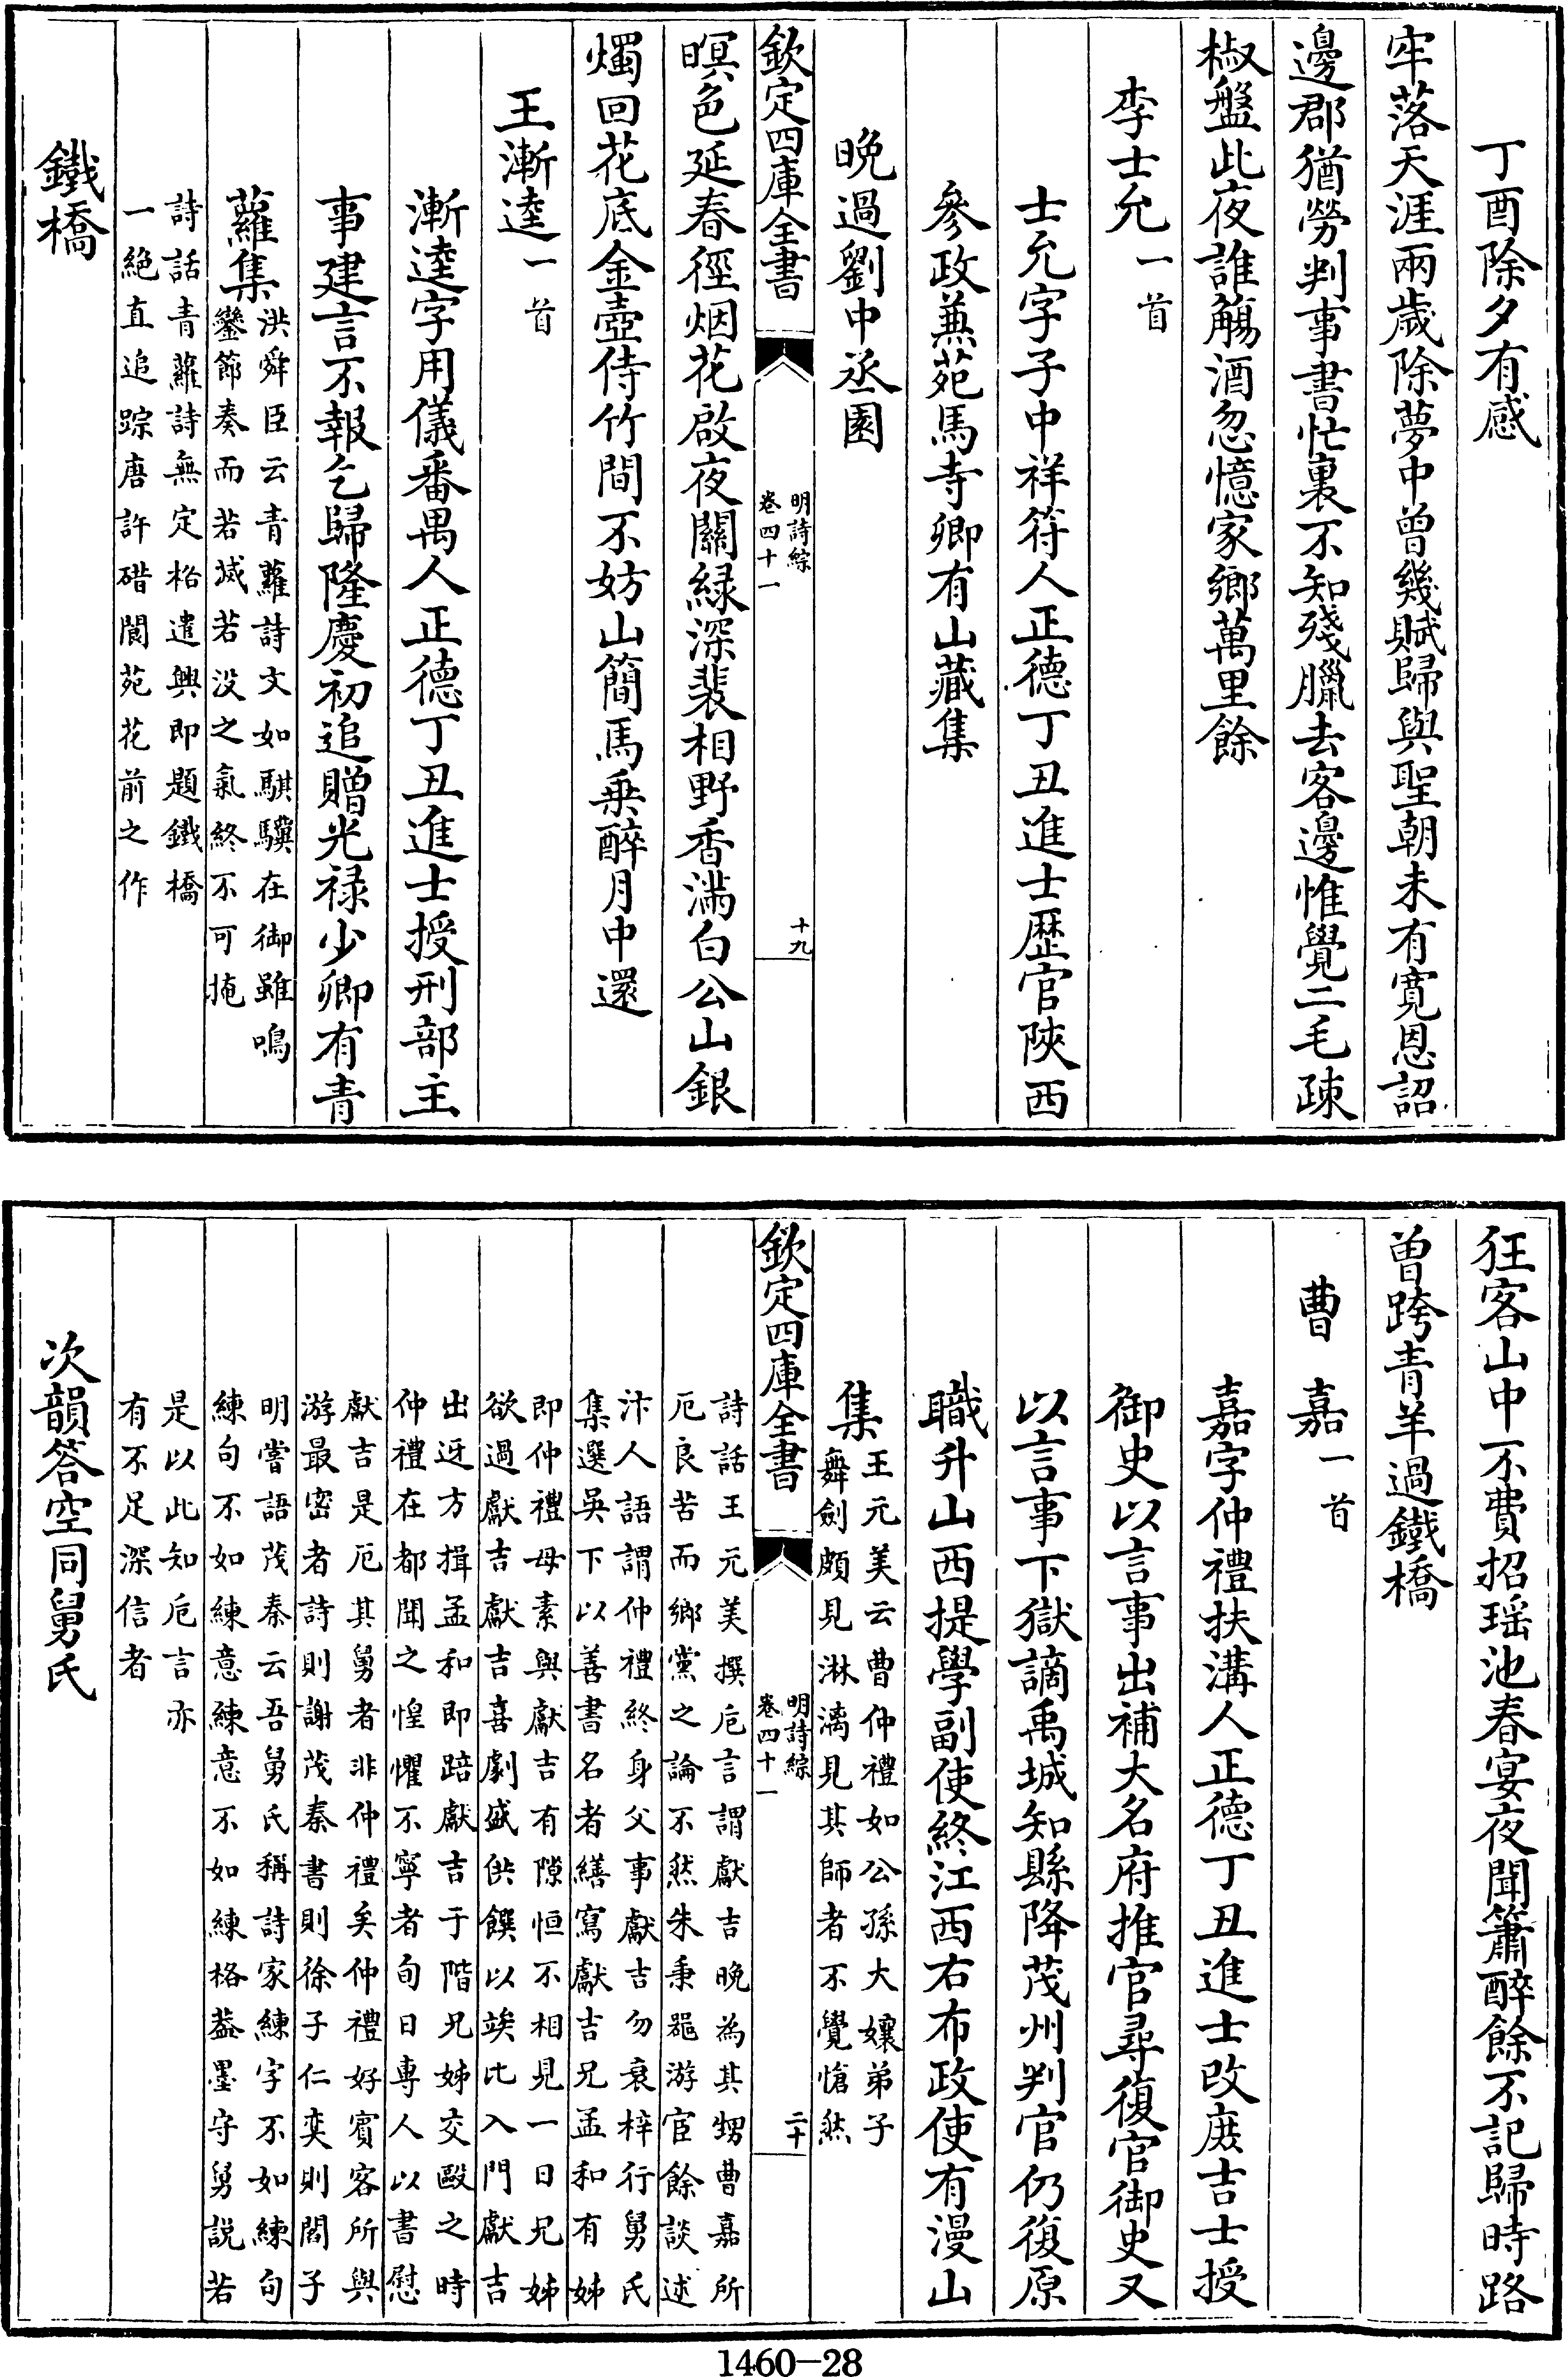 丁酉除夕有感
牢落天涯兩歲除夢中曾幾賦歸與聖朝未有寛恩詔
邊郡猶勞判事書忙裏不知殘臘去客邊惟覺二毛疎
椒盤此夜誰觴酒忽憶家鄉萬里餘
李士允一首
士允字子中祥符人正德丁丑進士歴官陜西
參政兼苑馬寺卿有山藏集
晚過劉中丞園
欽定四庫全書
明詩綜
卷四十一
十九
暝色延春徑烟花啟夜關緑深裴相野香滿白公山銀
燭回花底金壺侍竹間不妨山簡馬乗醉月中還
王漸逵一首
漸逵字用儀番禺人正德丁丑進士授刑部主
事建言不報乞歸隆慶初追贈光禄少卿有青
蘿集
洪舜臣云青蘿詩文如騏驥在御雖鳴
鑾節奏而若滅若没之氣終不可掩
詩話青蘿詩無定格遣興即題鐵橋
一絶直追踪唐許碏閬苑花前之作
鐵橋
狂客山中不費招瑶池春宴夜聞簫醉餘不記歸時路
曽跨青羊過鐵橋
曹嘉一首
嘉字仲禮扶溝人正德丁丑進士改庶吉士授
御史以言事出補大名府推官尋復官御史又
以言事下獄謫禹城知縣降茂州判官仍復原
職升山西提學副使終江西右布政使有漫山
集
王元美云曹仲禮如公孫大孃弟子
舞劍頗見淋漓見其師者不覺愴然
欽定四庫全書
明詩綜
卷四十一
二十
詩話王元美撰巵言謂獻吉晚為其甥曹嘉所
厄良苦而鄉黨之論不然朱秉器游宦餘談述
汴人語謂仲禮終身父事獻吉勿衰梓行舅氏
集選吳下以善書名者繕寫獻吉兄孟和有姊
即仲禮母素與獻吉有隙恒不相見一日兄姊
欲過獻吉獻吉喜劇盛供饌以竢比入門獻吉
出迓方揖孟和即踣獻吉于階兄姊交毆之時
仲禮在都聞之惶懼不寧者旬日專人以書慰
獻吉是厄其舅者非仲禮矣仲禮好賓客所與
游最密者詩則謝茂秦書則徐子仁奕則閻子
明嘗語茂秦云吾舅氏稱詩家練字不如練句
練句不如練意練意不如練格葢墨守舅説若
是以此知巵言亦
有不足深信者
次韻答空同舅氏
1460-28